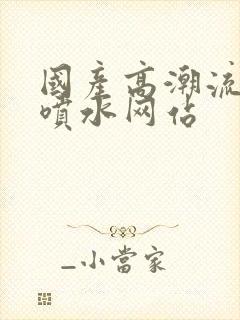 國產高潮流
噴水网佔
_小當家